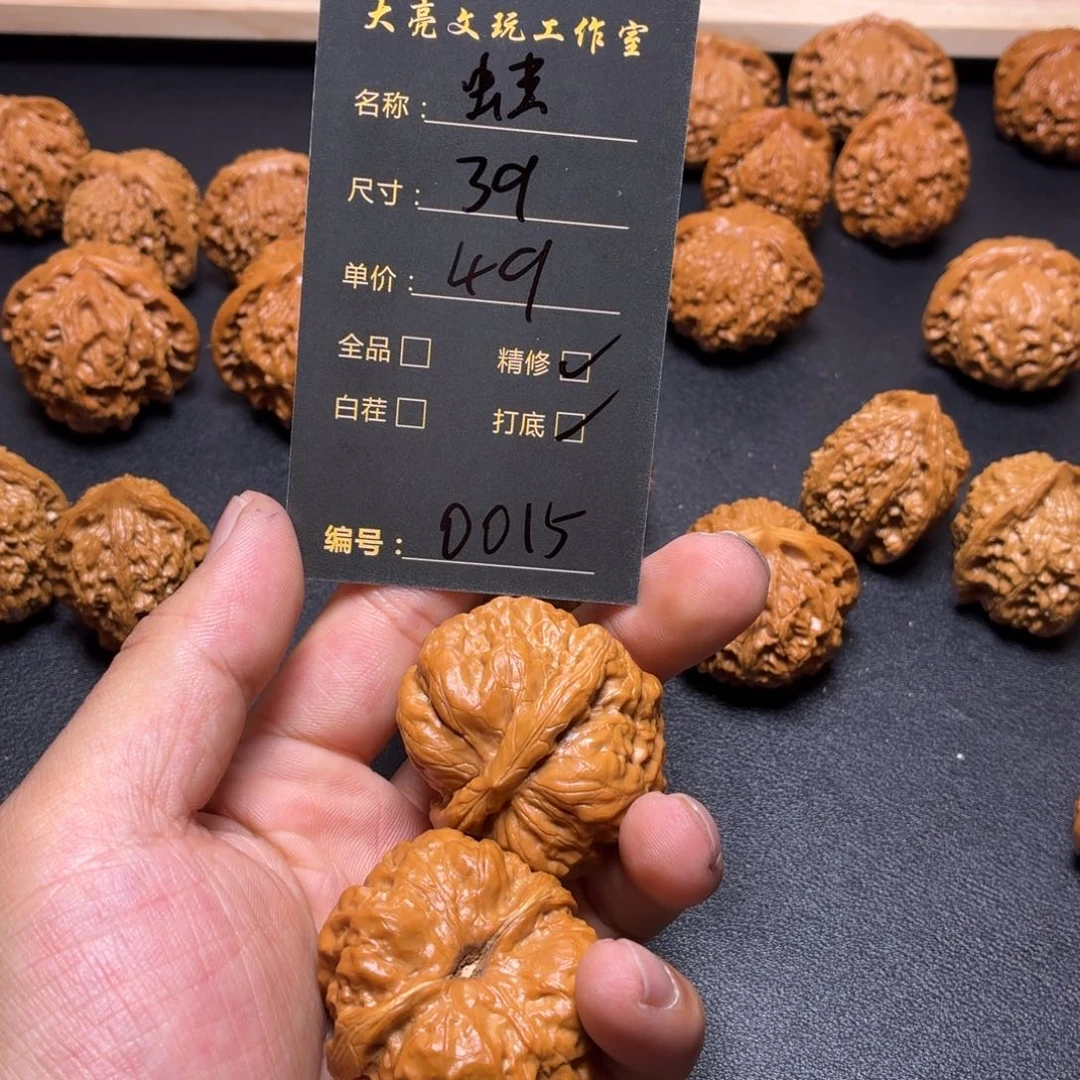 大亮文玩工作室
名称：蛙
尺寸：39
单价：49
全品□ 精修☑
白茬□ 打底☑
编号：0015